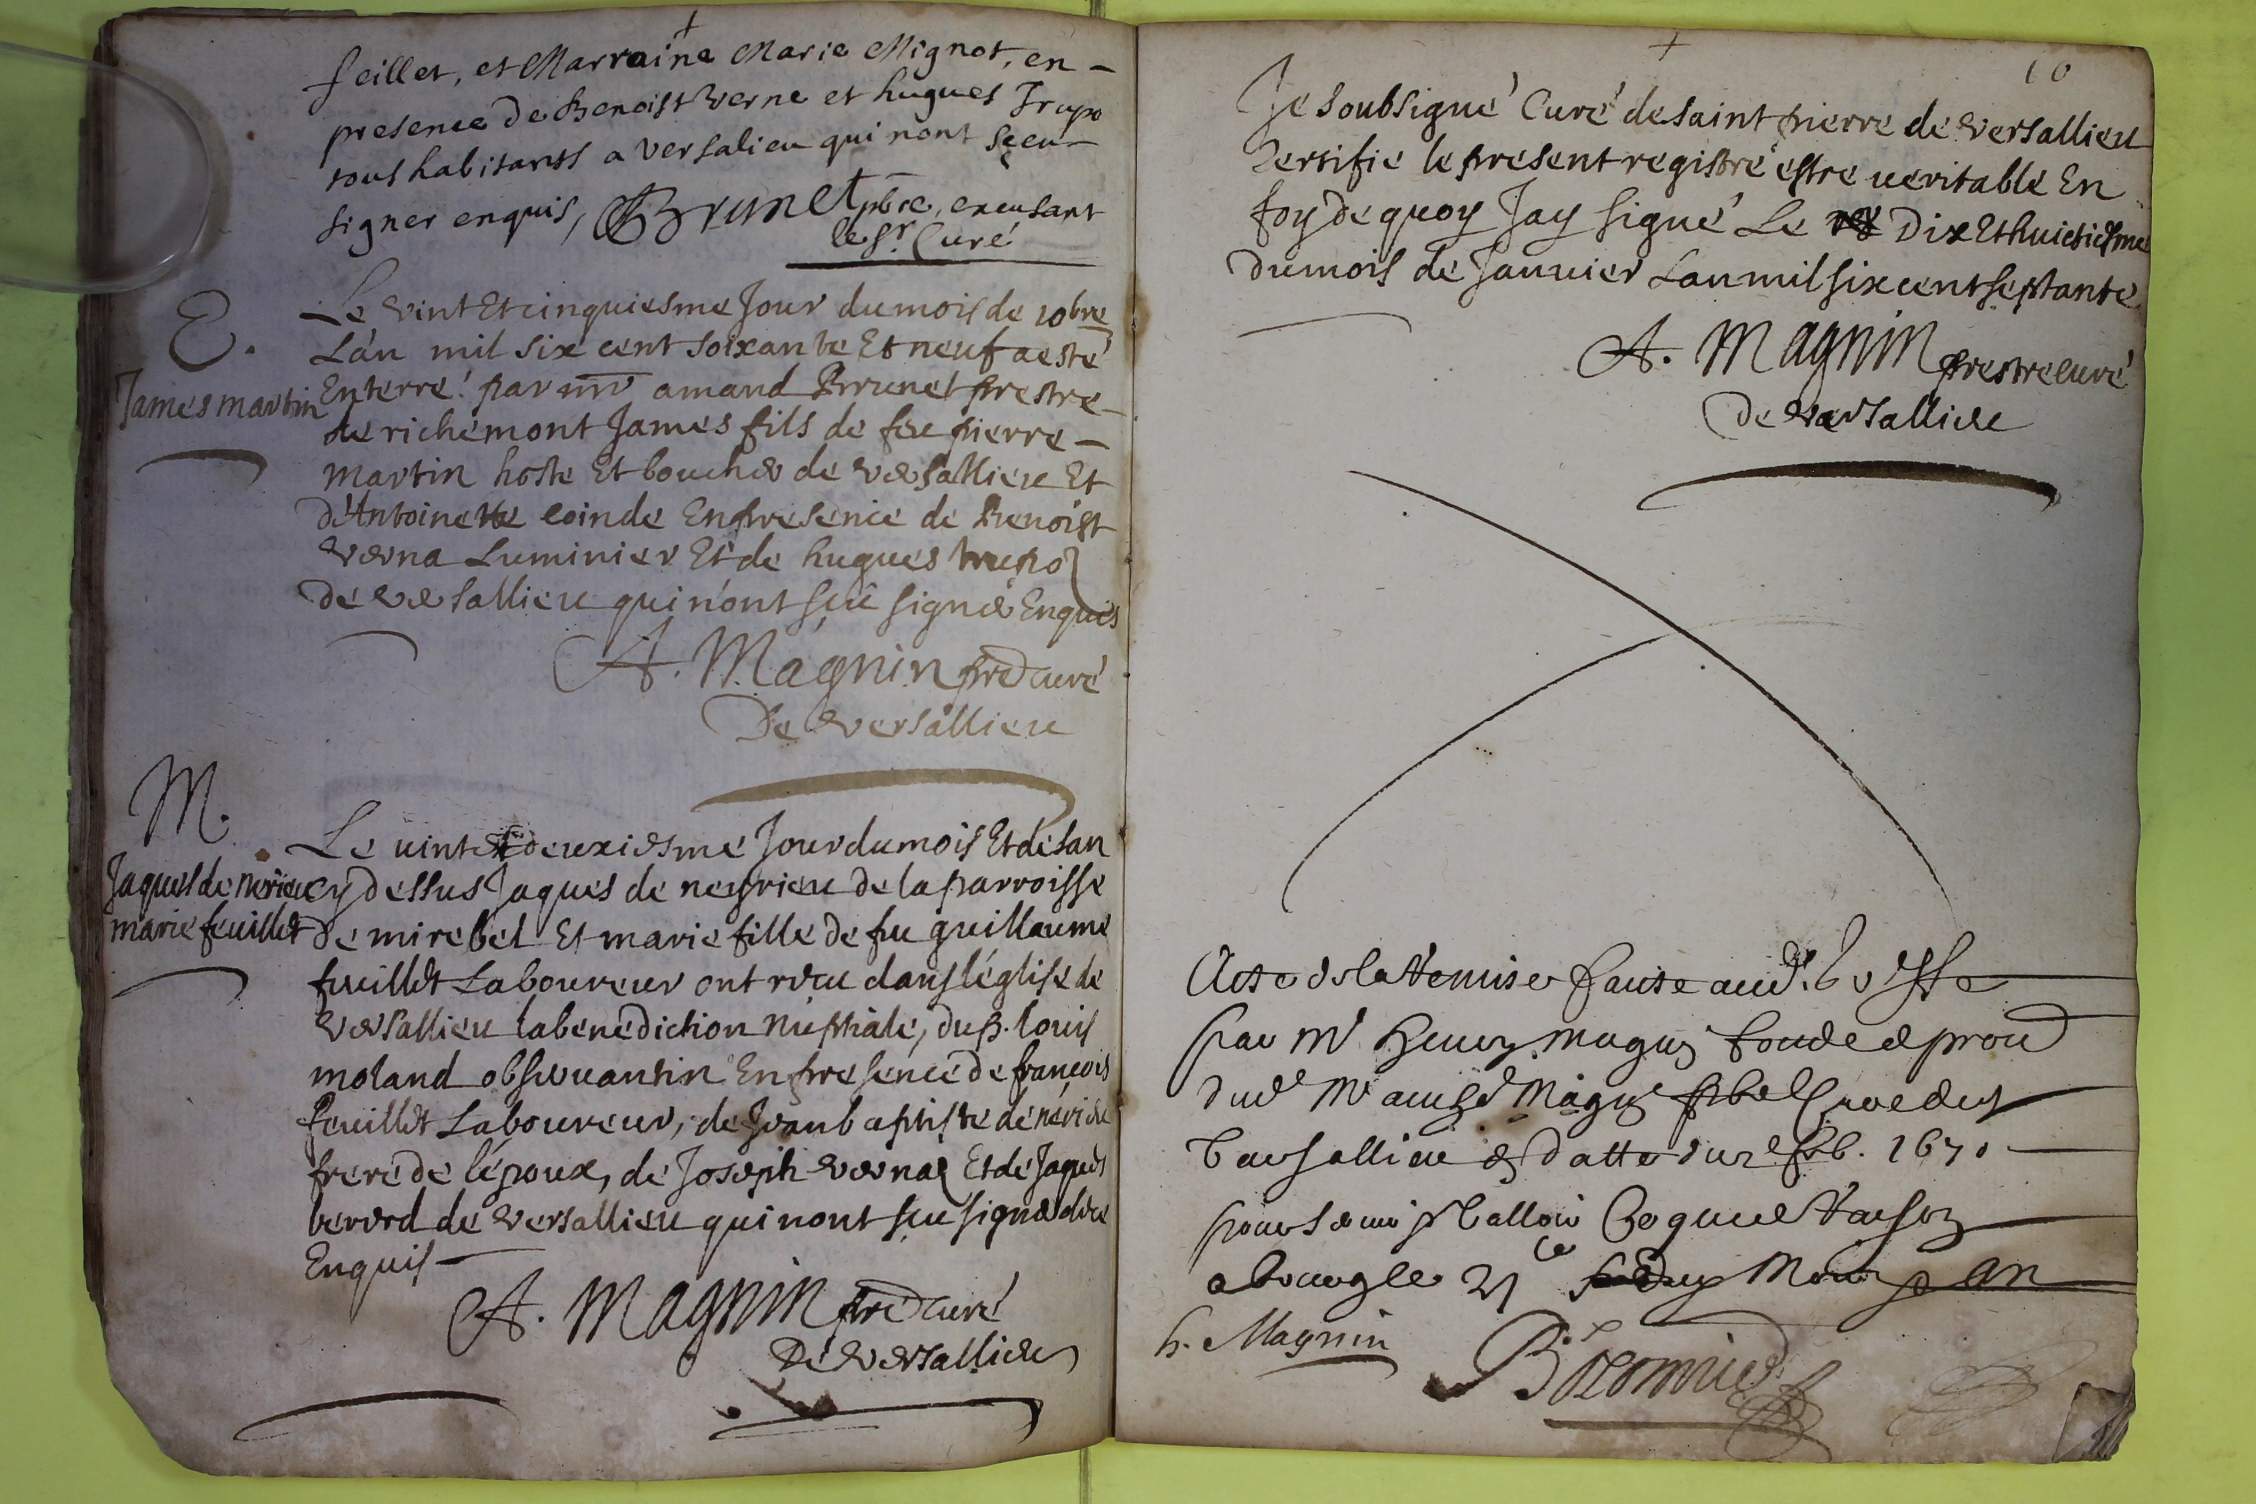 feillet, et Marraine Marie Mignot, en -
presence de Benoist Verne et hugues Trupo
tous habitants a Versalieu qui nont sçeu -
signer enquis, Brunet pbre, excusant
le Sr. Curé
E.
James martin
Le vint Et cinquiesme Jour du mois de 10bre
Lan mil six cent soixante Et neuf a esté
Enterré par mre amand Brunet prestre -
de richemont James fils de feu pierre -
martin hoste Et boucher de versallieu Et
d'Antoinette coinde En presence de Benoist
verna Luminier Et de hugues trupo
de versallieu qui n'ont sçeu signer Enquis
A. Magnin pre curé
De versallieu
M.
Jaques de nerieu
marie feuillet
Le vint et deuxiesme Jour du mois Et de lan
cy dessus Jaques de neyrieu de la parroisse
de mirebel Et marie fille de feu guillaume
feuillet Laboureur ont receu dans l'église de
versallieu la benediction nuptiale, du p. louis
moland observantin En presence de francois
feuillet Laboureur, de Jean baptiste de nerieu
frere de l'époux, de Joseph verna Et de Jaques
berord de versallieu qui nont sçeu signer de ce
Enquis -
A. Magnin pre curé
De versallieu
10
Je soubsigné Curé de saint pierre de versallieu
Certifie le present registre estre veritable En
foy de quoy Jay signé Le Dix Et huictiesme
du mois de Janvier Lan mil six cent septante
A. Magnin prestre curé
de versallieu
Acte de la Remise faite aud. Greffe
par Mr Henry magnin fondé de procu
dud Mr Magnin pbre Curé dud
Versallieu datte du 2e feb. 1670
pour
a bourg le 21 an
h. Magnin